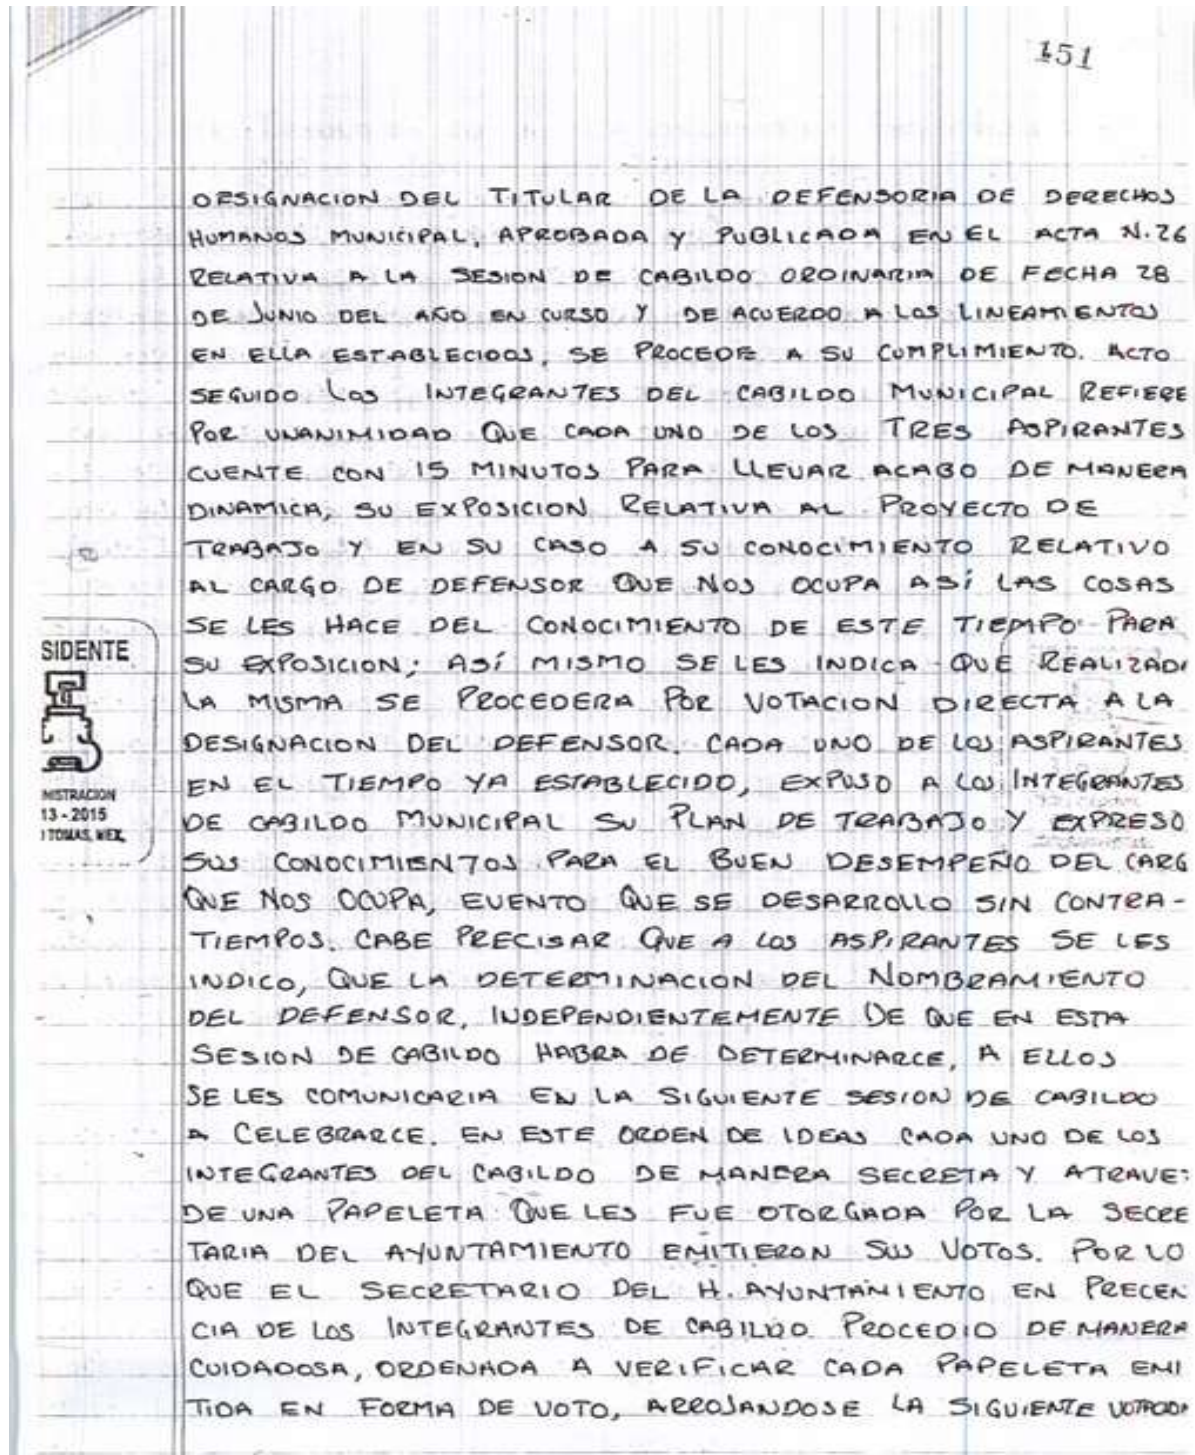 151
DESIGNACION DEL TITULAR DE LA DEFENSORIA DE DERECHOS
HUMANOS MUNICIPAL, APROBADA Y PUBLICADA EN EL ACTA N.26
RELATIVA A LA SESION DE CABILDO ORDINARIA DE FECHA 28
DE JUNIO DEL AÑO EN CURSO Y DE ACUERDO A LOS LINEAMIENTOS
EN ELLA ESTABLECIDOS, SE PROCEDE A SU CUMPLIMIENTO. ACTO
SEGUIDO LOS INTEGRANTES DEL CABILDO MUNICIPAL REFIERE
POR UNANIMIDAD QUE CADA UNO DE LOS TRES ASPIRANTES
CUENTE CON 15 MINUTOS PARA LLEVAR ACABO DE MANERA
DINAMICA, SU EXPOSICION RELATIVA AL PROYECTO DE
TRABAJO Y EN SU CASO A SU CONOCIMIENTO RELATIVO
AL CARGO DE DEFENSOR QUE NOS OCUPA ASÍ LAS COSAS
SE LES HACE DEL CONOCIMIENTO DE ESTE TIEMPO PARA
SU EXPOSICION; ASÍ MISMO SE LES INDICA QUE REALIZADA
LA MISMA SE PROCEDERA POR VOTACION DIRECTA A LA
DESIGNACION DEL DEFENSOR. CADA UNO DE LOS ASPIRANTES
EN EL TIEMPO YA ESTABLECIDO, EXPUSO A LOS INTEGRANTES
DE CABILDO MUNICIPAL SU PLAN DE TRABAJO Y EXPRESO
SUS CONOCIMIENTOS PARA EL BUEN DESEMPEÑO DEL CARG
QUE NOS OCUPA, EVENTO QUE SE DESARROLLO SIN CONTRA-
TIEMPOS. CABE PRECISAR QUE A LOS ASPIRANTES SE LES
INDICO, QUE LA DETERMINACION DEL NOMBRAMIENTO
DEL DEFENSOR, INDEPENDIENTEMENTE DE QUE EN ESTA
SESION DE CABILDO HABRA DE DETERMINARCE, A ELLOS
SE LES COMUNICARIA EN LA SIGUIENTE SESION DE CABILDO
A CELEBRARCE. EN ESTE ORDEN DE IDEAS CADA UNO DE LOS
INTEGRANTES DEL CABILDO DE MANERA SECRETA Y ATRAVE
DE UNA PAPELETA QUE LES FUE OTORGADA POR LA SECRE
TARIA DEL AYUNTAMIENTO EMITIERON SUS VOTOS. POR LO
QUE EL SECRETARIO DEL H. AYUNTAMIENTO EN PRECEN
CIA DE LOS INTEGRANTES DE CABILDO PROCEDIO DE MANERA
CUIDADOSA, ORDENADA A VERIFICAR CADA PAPELETA EMI
TIDA EN FORMA DE VOTO, ARROJANDOSE LA SIGUIENTE
SIDENTE
NISTRACION
13 - 2015
TOMAS, MEX.